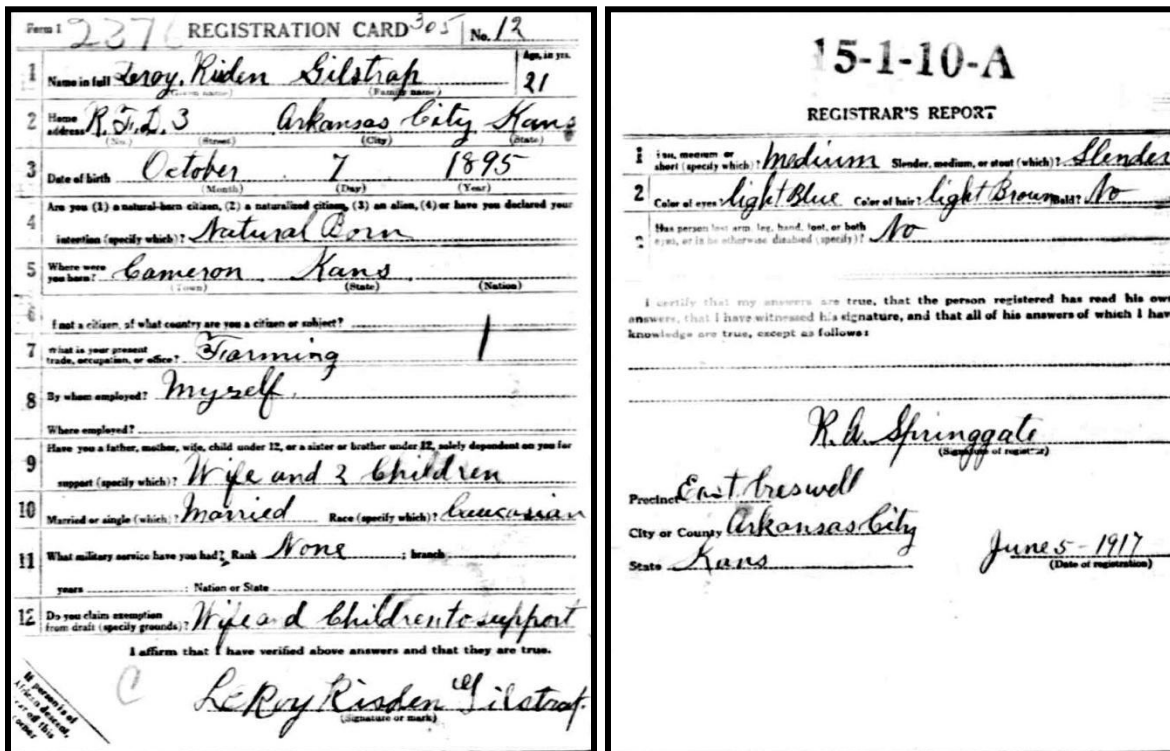 Form 1 2376 REGISTRATION CARD 305 No. 12
1 Name in full Leroy, Risden Gilstrap Age, in yrs. 21
(Given name) (Family name)
2 Home address R.F.D. 3 Arkansas City Kans
(No.) (Street) (City) (State)
3 Date of birth October 7 1895
(Month) (Day) (Year)
4 Are you (1) a natural-born citizen, (2) a naturalized citizen, (3) an alien, (4) or have you declared your
intention (specify which)? Natural Born
5 Where were you born? Cameron Kans
(Town) (State) (Nation)
6 I not a citizen, of what country are you a citizen or subject?
7 What is your present trade, occupation, or office? Farming
8 By whom employed? Myself.
Where employed?
9 Have you a father, mother, wife, child under 12, or a sister or brother under 12, solely dependent on you for
support (specify which)? Wife and 2 Children
10 Married or single (which)? Married Race (specify which)? Caucasian
11 What military service have you had? Rank None ; branch
years ; Nation or State
12 Do you claim exemption from draft (specify grounds)? Wife and Children to support
I affirm that I have verified above answers and that they are true.
C
LeRoy Risden Gilstrap.
(Signature or mark)
If person is of
African descent,
off this
corner
15-1-10-A
REGISTRAR'S REPORT
1 medium or short (specify which)? Medium Slender, medium, or stout (which)? Slender
2 Color of eyes light Blue Color of hair? light Brown Bald? No
Has person lost arm, leg, hand, foot, or both
eyes, or is he otherwise disabled (specify)? No
I certify that my answers are true, that the person registered has read his own
answers, that I have witnessed his signature, and that all of his answers of which I have
knowledge are true, except as follows:
R. A. Springgate
(Signature of registrar)
Precinct East Creswell
City or County Arkansas City
State Kans
June 5 - 1917
(Date of registration)